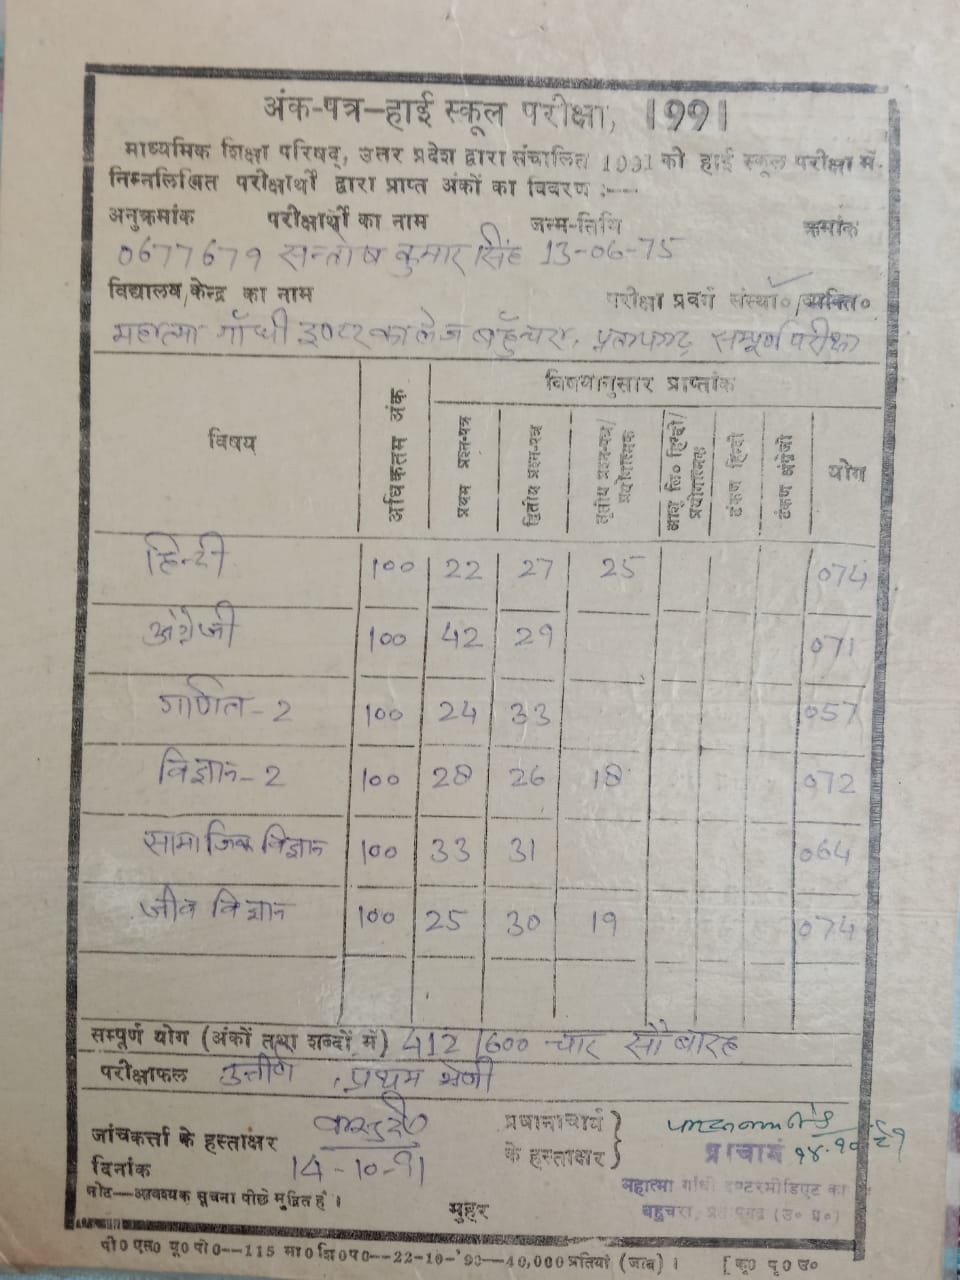 अंक-पत्र—हाई स्कूल परीक्षा, 1991
माध्यमिक शिक्षा परिषद्, उत्तर प्रदेश द्वारा संचालित 1991 की हाई स्कूल परीक्षा में
निम्नलिखित परीक्षार्थी द्वारा प्राप्त अंकों का विवरण :—
अनुक्रमांक परीक्षार्थी का नाम जन्म-तिथि क्रमांक
0677679 सन्तोष कुमार सिंह 13-06-75
विद्यालय/केन्द्र का नाम परीक्षा प्रवर्ग संस्था०/व्यक्ति०
महात्मा गाँधी इण्टर कालेज बहुँचरा, प्रतापगढ़ सम्पूर्ण परीक्षा
विषय अधिकतम अंक विषयानुसार प्राप्तांक योग
प्रथम प्रश्न-पत्र द्वितीय प्रश्न-पत्र तृतीय प्रश्न-पत्र/प्रयोगात्मक आशु लि० हिन्दी/प्रयोगात्मक टंकण हिन्दी टंकण अंग्रेजी
हिन्दी 100 22 27 25 074
अंग्रेजी 100 42 29 071
गणित-2 100 24 33 057
विज्ञान-2 100 28 26 18 072
सामाजिक विज्ञान 100 33 31 064
जीव विज्ञान 100 25 30 19 074
सम्पूर्ण योग (अंकों तथा शब्दों में) 412/600 चार सौ बारह
परीक्षाफल उत्तीर्ण, प्रथम श्रेणी
जांचकर्त्ता के हस्ताक्षर प्रधानाचार्य के हस्ताक्षर
प्राचार्य
दिनांक 14-10-91
महात्मा गांधी इण्टरमीडिएट का
नोट—आवश्यक सूचना पीछे मुद्रित है ।
मुहर बहुचरा, प्रतापगढ़ (उ० प्र०)
पी० एस० यू० पी०--115 मा० शि० प०--22-10-'90—40,000 प्रतियां (जाब) ।